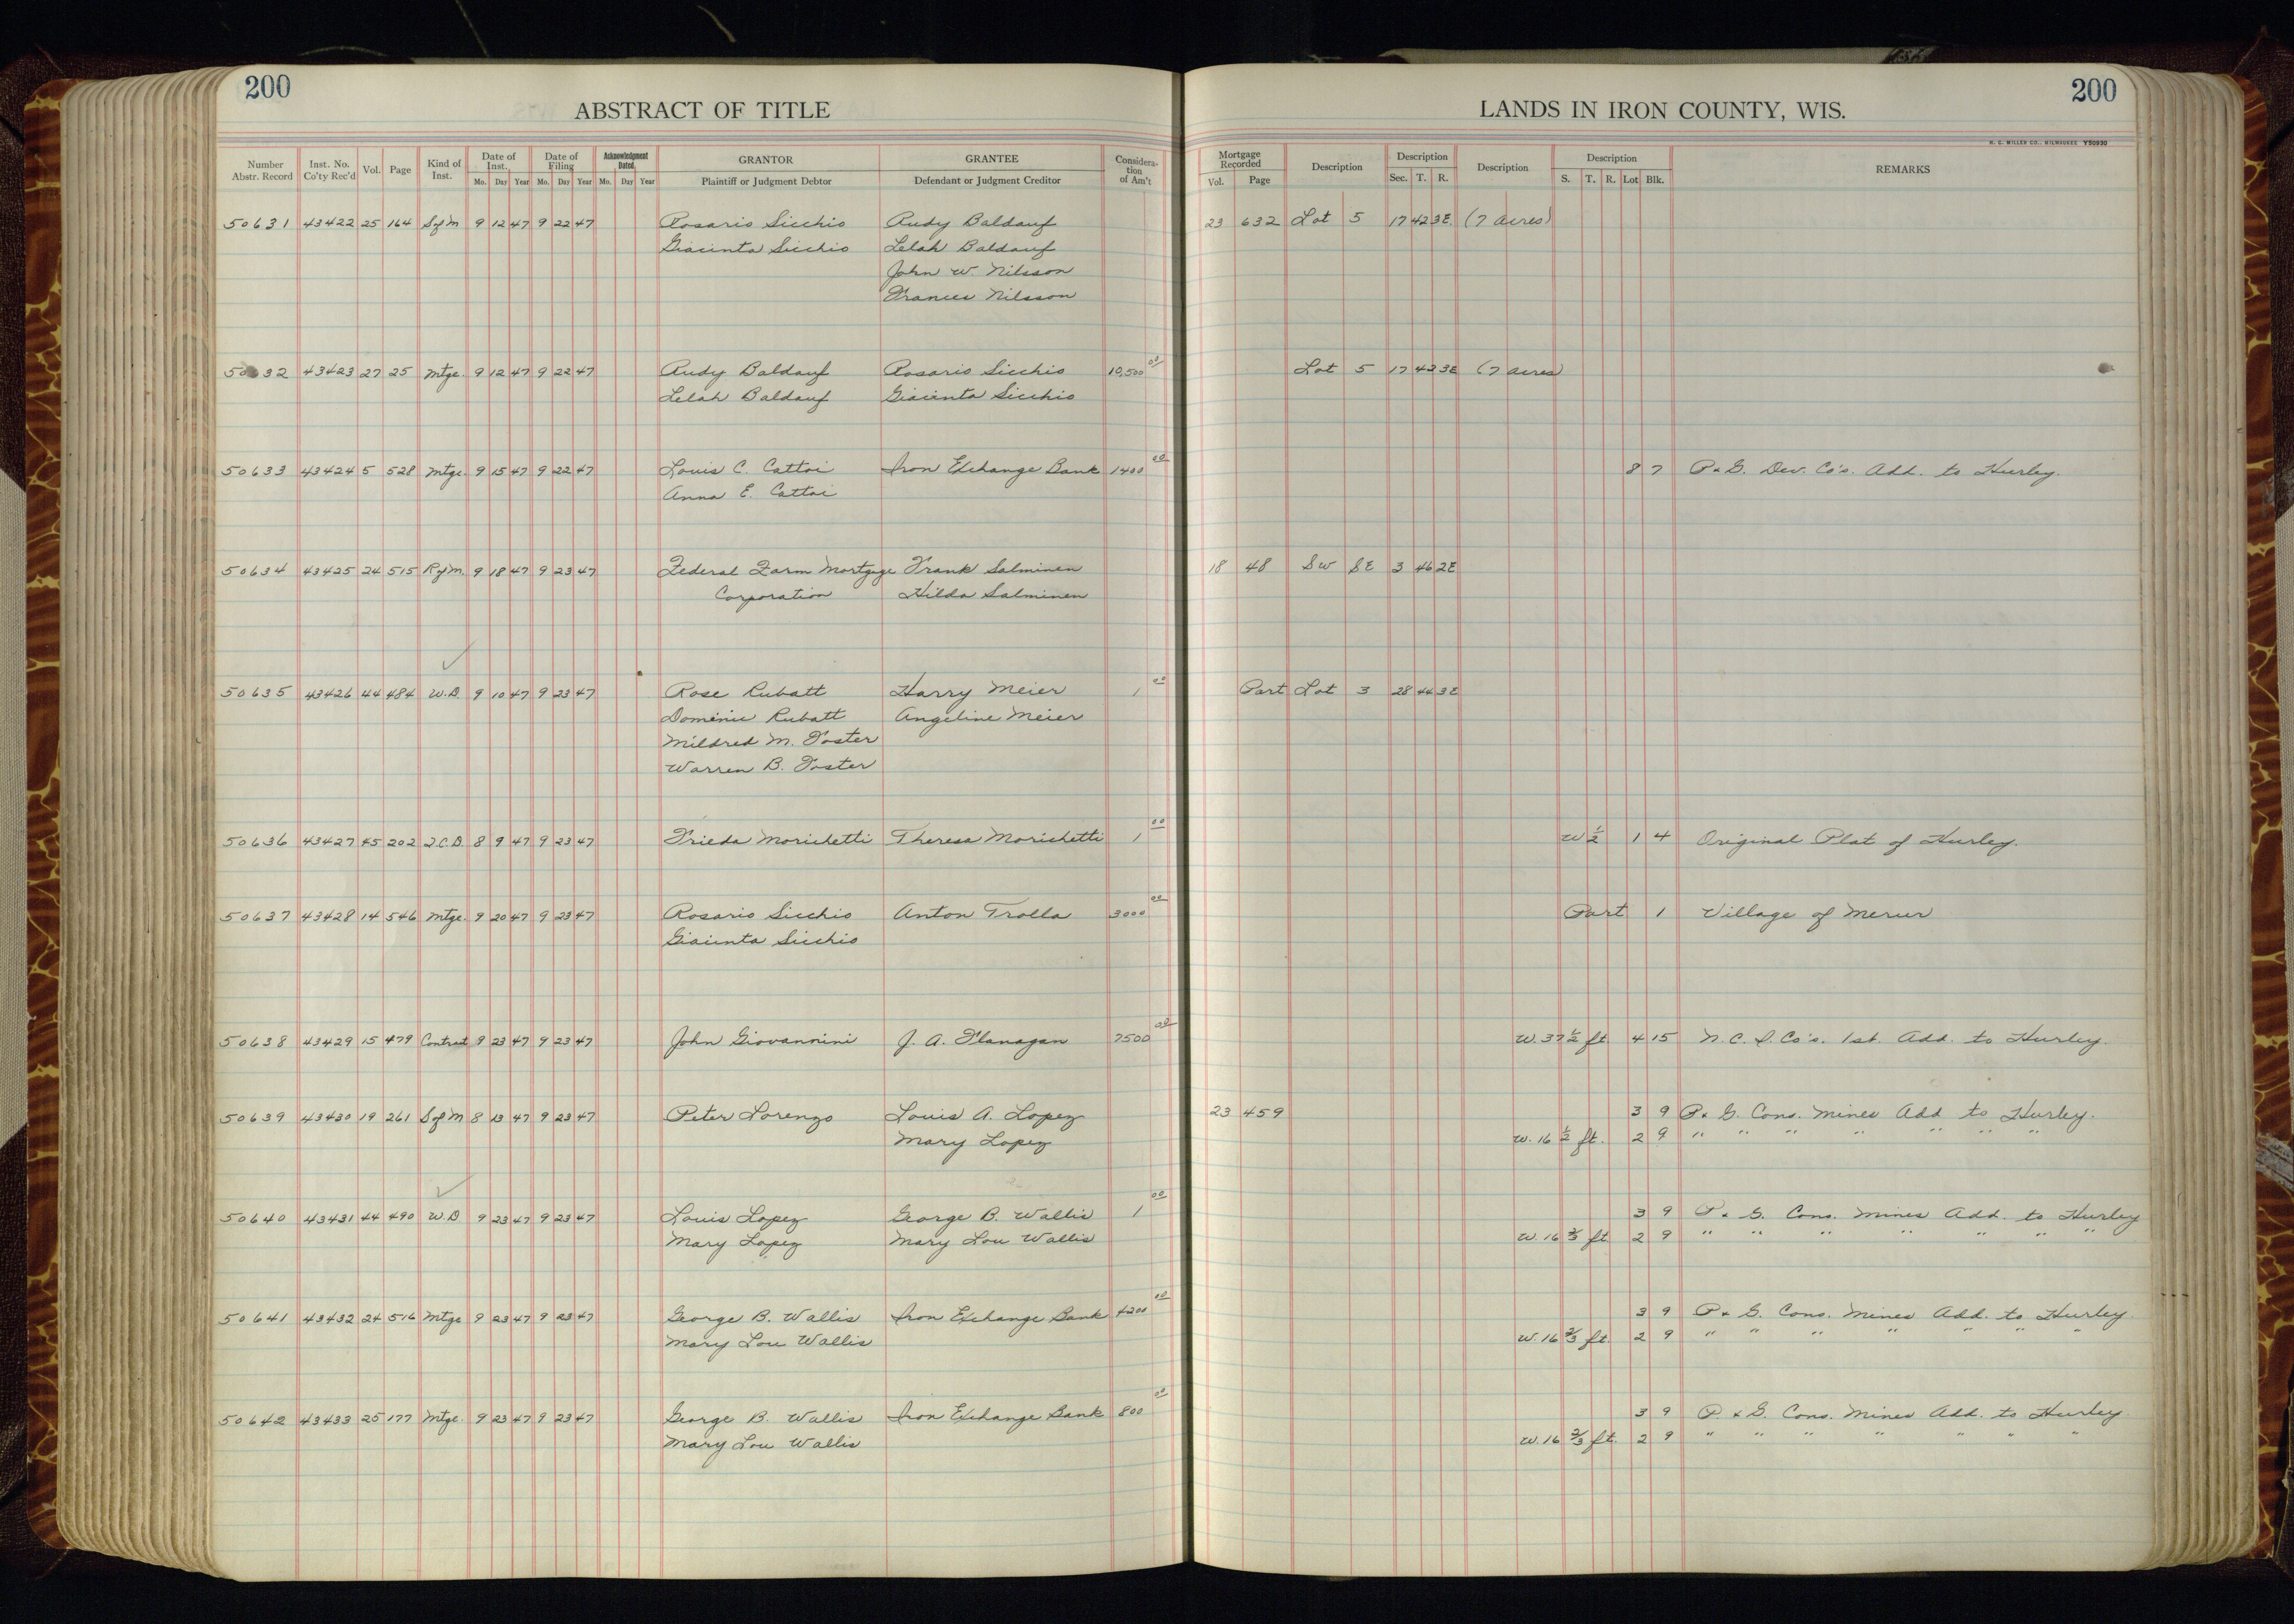 200
ABSTRACT OF TITLE
Number Abstr. Record Inst. No. Co'ty Rec'd Vol. Page Kind of Inst. Date of Inst. Mo. Day Year Date of Filing Mo. Day Year Acknowledgment Dated Mo. Day Year GRANTOR Plaintiff or Judgment Debtor GRANTEE Defendant or Judgment Creditor Considera-tion of Am't
200
LANDS IN IRON COUNTY, WIS.
H. C. MILLER CO., MILWAUKEE Y50930
Mortgage Recorded Vol. Page Description Description Sec. T. R. Description Description S. T. R. Lot Blk. REMARKS
50631 43422 25 164 S of M 9 12 47 9 22 47 Rosario Sicchio Rudy Baldauf 23 632 Lot 5 17 42 3E. (7 acres)
Giacinta Sicchio Lelah Baldauf
John W. Nilsson
Frances Nilsson
50632 43423 27 25 Mtge. 9 12 47 9 22 47 Rudy Baldauf Rosario Sicchio 10,500 00 Lot 5 17 42 3E (7 acres)
Lelah Baldauf Giacinta Sicchio
50633 43424 5 528 Mtge. 9 15 47 9 22 47 Louis C. Cattoi Iron Exchange Bank 1400 00 8 7 P. & G. Dev. Co's. Add. to Hurley.
Anna E. Cattoi
50634 43425 24 515 R of M. 9 18 47 9 23 47 Federal Farm Mortgage Frank Salminen 18 48 SW SE 3 46 2E
Corporation Hilda Salminen
50635 43426 44 484 W.D. 9 10 47 9 23 47 Rose Rubatt Harry Meier 1 00 Part Lot 3 28 44 3E
Dominic Rubatt Angeline Meier
Mildred M. Foster
Warren B. Foster
50636 43427 45 202 Q.C.D. 8 9 47 9 23 47 Frieda Morichetti Theresa Morichetti 1 00 W 1/2 1 4 Original Plat of Hurley.
50637 43428 14 546 Mtge. 9 20 47 9 23 47 Rosario Sicchio Anton Trolla 3000 00 Part 1 Village of Mercer
Giacinta Sicchio
50638 43429 15 479 Contract 9 23 47 9 23 47 John Giovannini J. A. Flanagan 7500 00 W. 37 1/2 ft. 4 15 N. C. I. Co's. 1st. Add. to Hurley.
50639 43430 19 261 S of M 8 13 47 9 23 47 Peter Lorenzo Louis A. Lopez 23 459 3 9 P. & G. Cons. Mines Add to Hurley.
Mary Lopez W. 16 1/2 ft. 2 9 " " " " " " "
50640 43431 44 490 W.D 9 23 47 9 23 47 Louis Lopez George B. Wallis 1 00 3 9 P. & G. Cons. Mines Add. to Hurley
Mary Lopez Mary Lou Wallis W. 16 2/3 ft 2 9 " " " " " " "
50641 43432 24 516 Mtge 9 23 47 9 23 47 George B. Wallis Iron Exchange Bank 4200 00 3 9 P. & G. Cons. Mines Add. to Hurley.
Mary Lou Wallis W. 16 2/3 ft. 2 9 " " " " " " "
50642 43433 25 177 Mtge. 9 23 47 9 23 47 George B. Wallis Iron Exchange Bank 800 00 3 9 P. & G. Cons. Mines Add. to Hurley.
Mary Lou Wallis W. 16 2/3 ft. 2 9 " " " " " " "